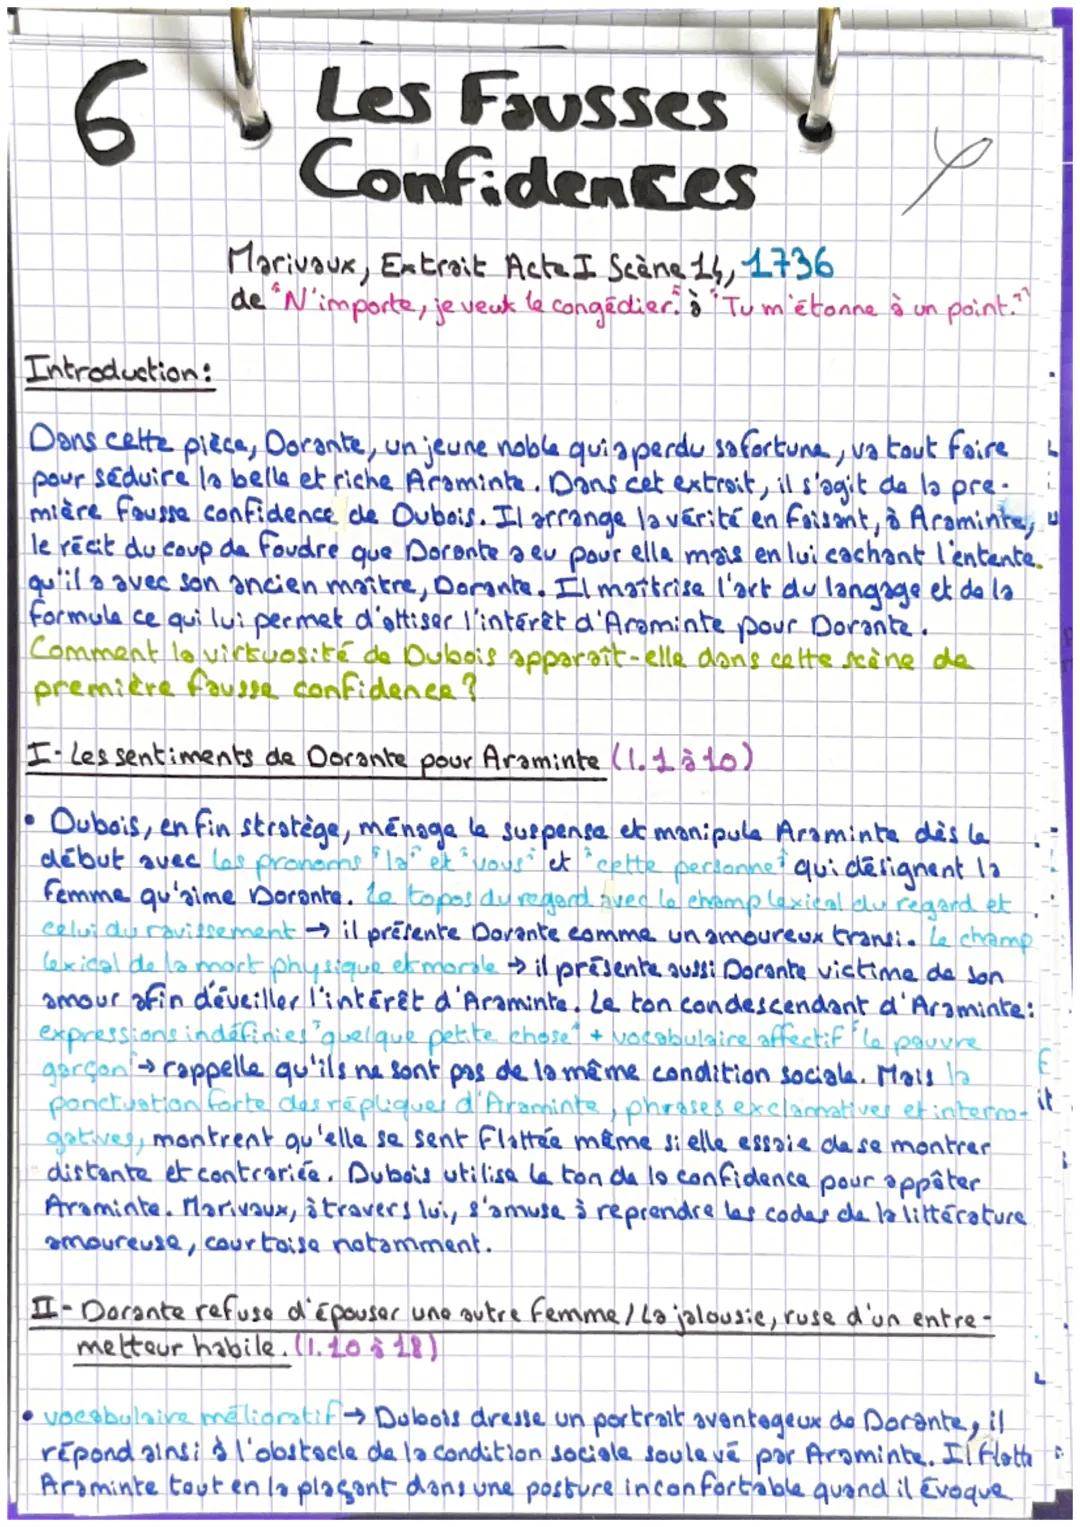 6
Les Fausses
Confidences
Marivaux, Extrait Acte I Scène 14, 1736
de "N'importe, je veux le congédier." à "Tu m'étonne à un point."
Introduction:
Dans cette pièce, Dorante, un jeune noble qui a perdu sa fortune, va tout faire
pour séduire la belle et riche Araminte. Dans cet extrait, il s'agit de la pre-
mière fausse confidence de Dubois. Il arrange la vérité en faisant, à Araminte,
le récit du coup de foudre que Dorante a eu pour elle mais en lui cachant l'entente
qu'il a avec son ancien maître, Dorante. Il maîtrise l'art du langage et de la
formule ce qui lui permet d'attiser l'intérêt d'Araminte pour Dorante.
Comment la virtuosité de Dubois apparaît-elle dans cette scène de
première fausse confidence ?
I- Les sentiments de Dorante pour Araminte (l. 1 à 10)
• Dubois, en fin stratège, ménage le suspense et manipule Araminte dès le
début avec les pronoms "la" et "vous" et "cette personne" qui désignent la
femme qu'aime Dorante. Le topos du regard avec le champ lexical du regard et
celui du ravissement → il présente Dorante comme un amoureux transi. Le champ
lexical de la mort physique et morale → il présente aussi Dorante victime de son
amour afin d'éveiller l'intérêt d'Araminte. Le ton condescendant d'Araminte:
expressions indéfinies "quelque petite chose" + vocabulaire affectif "le pauvre
garçon" → rappelle qu'ils ne sont pas de la même condition sociale. Mais la
ponctuation forte des répliques d'Araminte, phrases exclamatives et interro-
gatives, montrent qu'elle se sent flattée même si elle essaie de se montrer
distante et contrariée. Dubois utilise le ton de la confidence pour appâter
Araminte. Marivaux, à travers lui, s'amuse à reprendre les codes de la littérature
amoureuse, courtoise notamment.
II- Dorante refuse d'épouser une autre femme / La jalousie, ruse d'un entre-
metteur habile. (l. 10 à 18)
• vocabulaire mélioratif → Dubois dresse un portrait avantageux de Dorante, il
répond ainsi à l'obstacle de la condition sociale soulevé par Araminte. Il flatte
Araminte tout en la plaçant dans une posture inconfortable quand il évoque